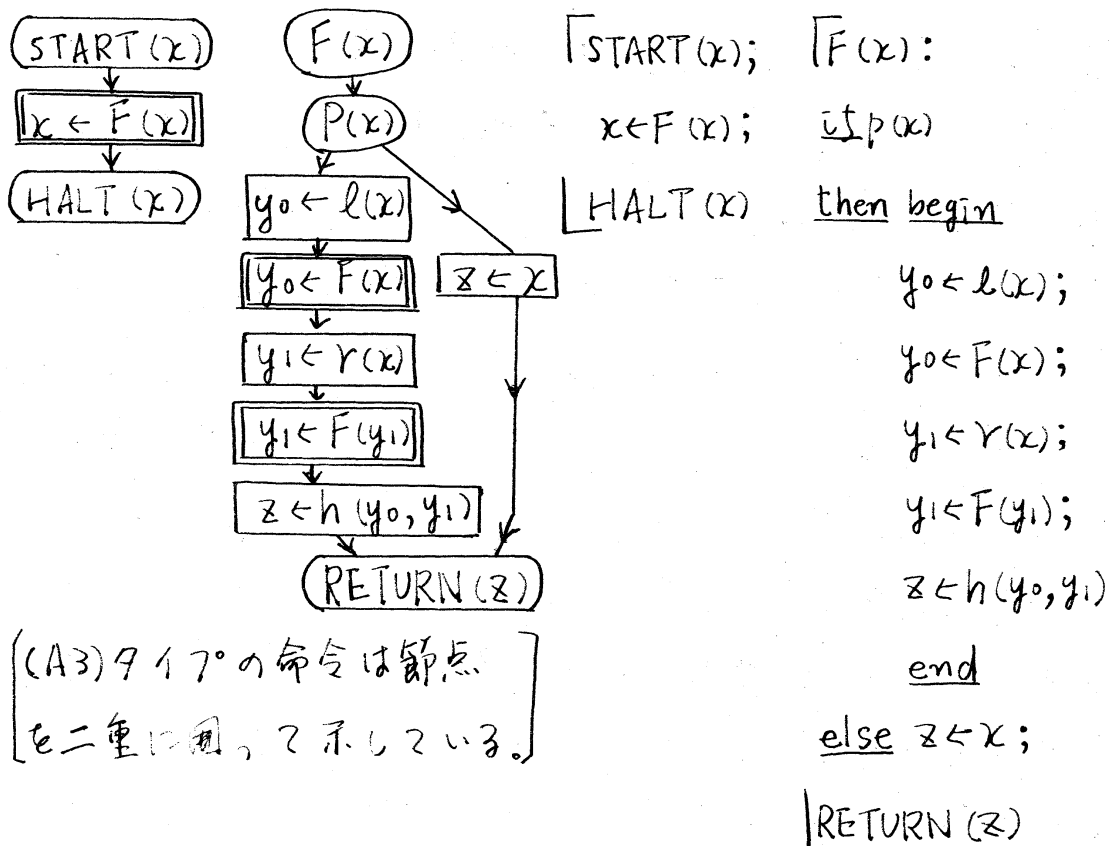 START(x)
x ← F(x)
HALT(x)
F(x)
P(x)
y₀ ← l(x)
y₀ ← F(x)
z ← x
y₁ ← r(x)
y₁ ← F(y₁)
z ← h(y₀, y₁)
RETURN(z)
(A3)タイプの命令は節点
を二重に囲って示している。
START(x);
x ← F(x);
HALT(x)
F(x):
if p(x)
then begin
y₀ ← l(x);
y₀ ← F(x);
y₁ ← r(x);
y₁ ← F(y₁);
z ← h(y₀, y₁)
end
else z ← x;
RETURN(z)